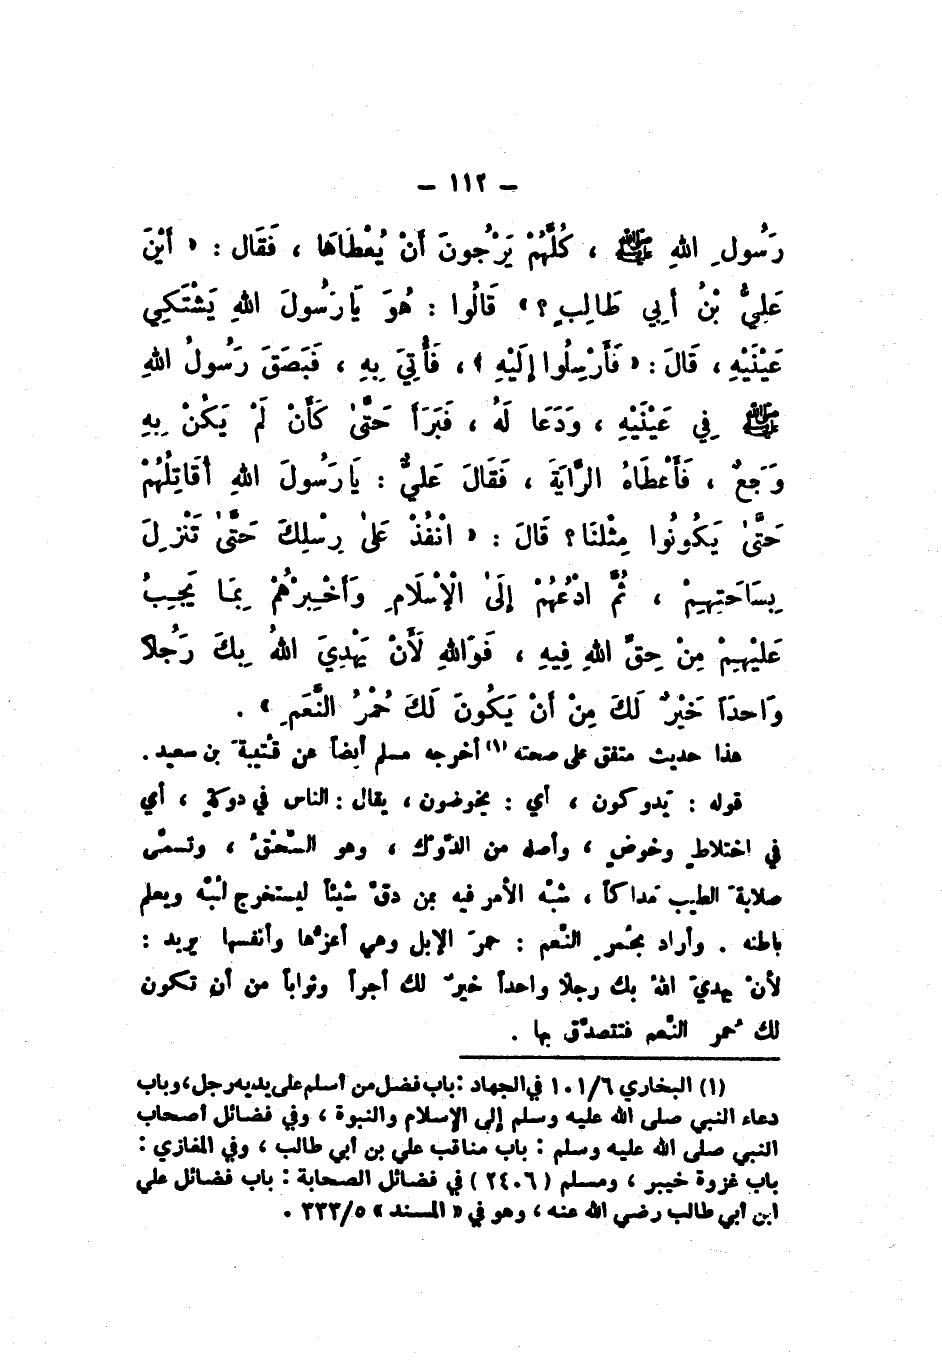 – ١١٢ –
رَسُولِ اللهِ ﷺ ، كُلُّهُمْ يَرْجُونَ أَنْ يُعْطَاهَا ، فَقَال : « أَيْنَ
عَلِيُّ بْنُ أَبِي طَالِبٍ ؟ » قَالُوا : هُوَ يَا رَسُولَ اللهِ يَشْتَكِي
عَيْنَيْهِ ، قَالَ : « فَأَرْسِلُوا إِلَيْهِ » ، فَأُتِيَ بِهِ ، فَبَصَقَ رَسُولُ اللهِ
ﷺ فِي عَيْنَيْهِ ، وَدَعَا لَهُ ، فَبَرَأَ حَتَّىٰ كَأَنْ لَمْ يَكُنْ بِهِ
وَجَعٌ ، فَأَعْطَاهُ الرَّايَةَ ، فَقَالَ عَلِيٌّ : يَا رَسُولَ اللهِ أُقَاتِلُهُمْ
حَتَّىٰ يَكُونُوا مِثْلَنَا ؟ قَالَ : « انْفُذْ عَلَىٰ رِسْلِكَ حَتَّىٰ تَنْزِلَ
بِسَاحَتِهِمْ ، ثُمَّ ادْعُهُمْ إِلَىٰ الْإِسْلَامِ وَأَخْبِرْهُمْ بِمَا يَجِبُ
عَلَيْهِمْ مِنْ حَقِّ اللهِ فِيهِ ، فَوَاللهِ لَأَنْ يَهْدِيَ اللهُ بِكَ رَجُلاً
وَاحِدَاً خَيْرٌ لَكَ مِنْ أَنْ يَكُونَ لَكَ حُمْرُ النَّعَمِ » .
هذا حديث متفق على صحته (١) أخرجه مسلم أيضاً عن قُتيبةَ بن سعيد .
قوله : يَدوكون ، أي : يخوضون ، يقال : الناس في دوكةٍ ، أي
في اختلاطٍ وخوضٍ ، وأصله من الدَّوْك ، وهو السَّحْقُ ، وتسمَّى
صلابةَ الطيب مَداكاً ، شبَّه الأمر فيه بمن دقَّ شيئاً ليستخرج لُبَّه ويعلم
باطنه . وأراد بحُمرِ النَّعم : حمرَ الإبل وهي أعزُّها وأنفسها يريد :
لأنْ يهديَ اللهُ بك رجلًا واحداً خيرٌ لك أجراً وثواباً من أن تكون
لك حُمر النَّعم فتتصدَّق بها .
(١) البخاري ١٠١/٦ في الجهاد : باب فضل من أسلم على يديه رجل ، وباب
دعاء النبي صلى الله عليه وسلم إلى الإسلام والنبوة ، وفي فضائل أصحاب
النبي صلى الله عليه وسلم : باب مناقب علي بن أبي طالب ، وفي المغازي :
باب غزوة خيبر ، ومسلم ( ٢٤٠٦ ) في فضائل الصحابة : باب فضائل علي
ابن أبي طالب رضي الله عنه ، وهو في « المسند » ٣٣٣/٥ .